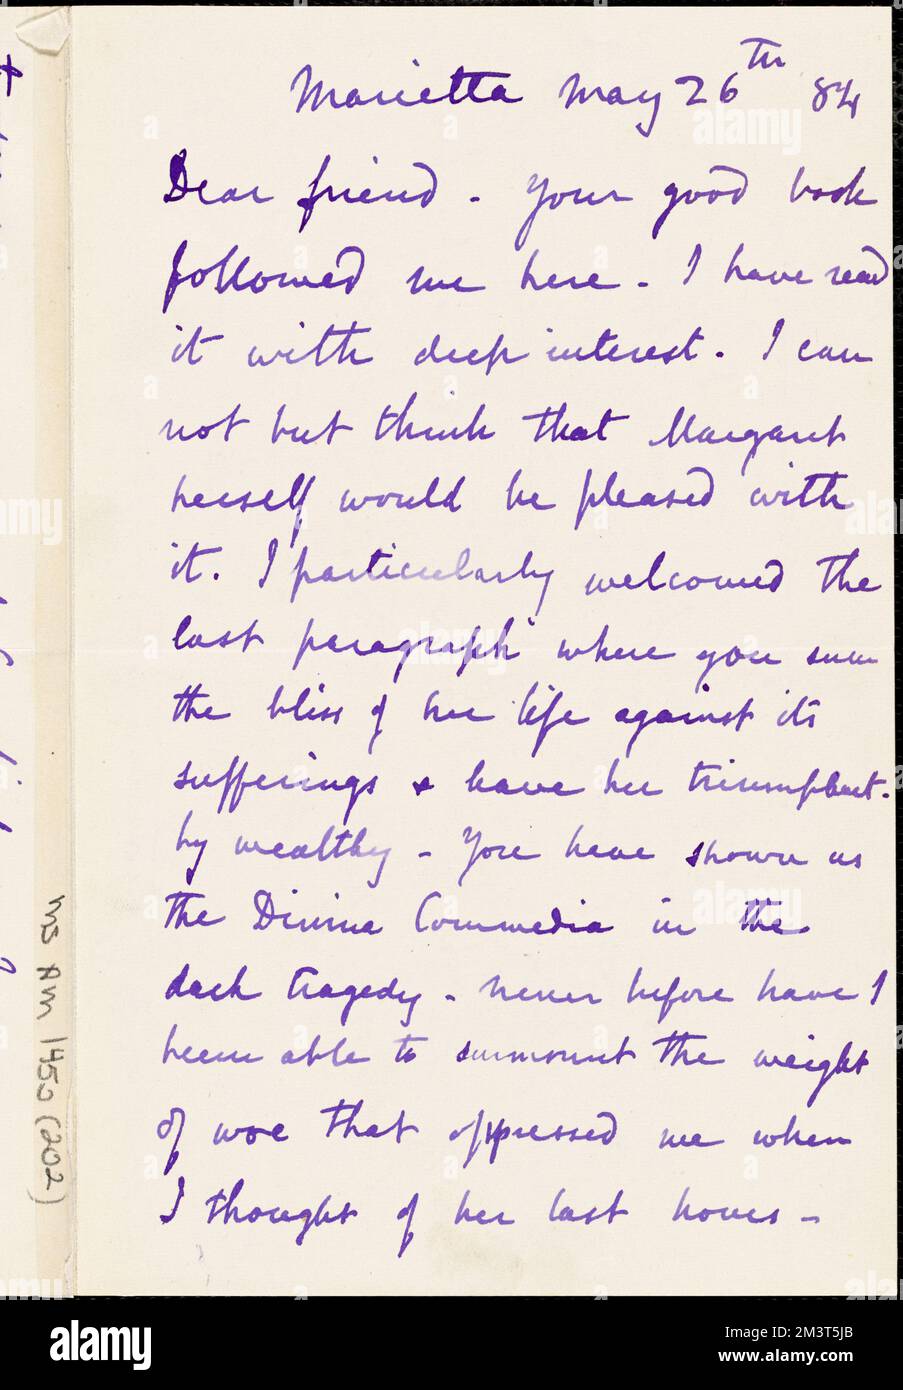 Marietta May 26th 84
Dear friend - Your good book
followed me here - I have read
it with deep interest. I can
not but think that Margaret
herself would be pleased with
it. I particularly welcomed the
last paragraph where you sum
the bliss of her life against its
sufferings & leave her triumphant.
by wealthy - You have shown us
the Divina Commedia in the
dark tragedy - Never before have I
been able to surmount the weight
of woe that oppressed me when
I thought of her last hours -
MS Am 1450 (202)
alamy
Image ID: 2M3T5JB
www.alamy.com